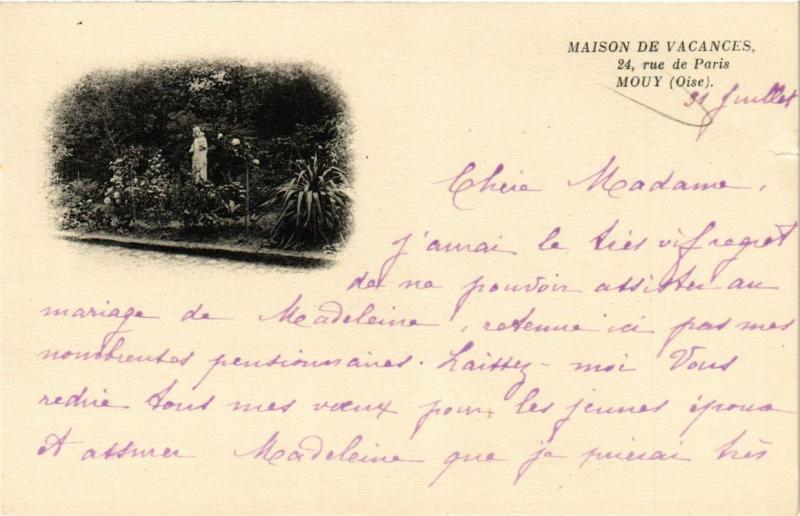 MAISON DE VACANCES,
24, rue de Paris
MOUY (Oise).
31 Juillet
Chère Madame,
j'aurai le très vif regret
de ne pouvoir assister au
mariage de Madeleine, retenue ici par mes
nombreuses pensionnaires. Laissez-moi Vous
redire tous mes vœux pour les jeunes époux
et assurer Madeleine que je prierai très